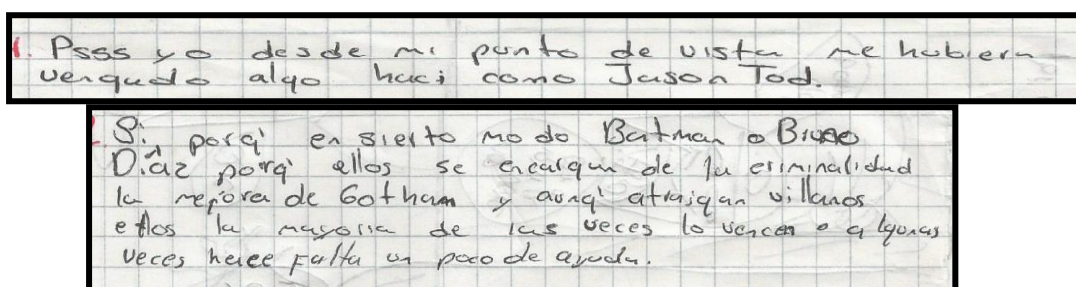 1. Psss yo desde mi punto de vista me hubiera
vengado algo haci como Jason Tod.
2 Si porq' en sierto modo Batman o Bruno
Díaz porq' ellos se encargan de la criminalidad
la mejora de Gotham y aunq' atraigan villanos
ellos la mayoria de las veces lo vencen o algunas
veces hace falta un poco de ayuda.